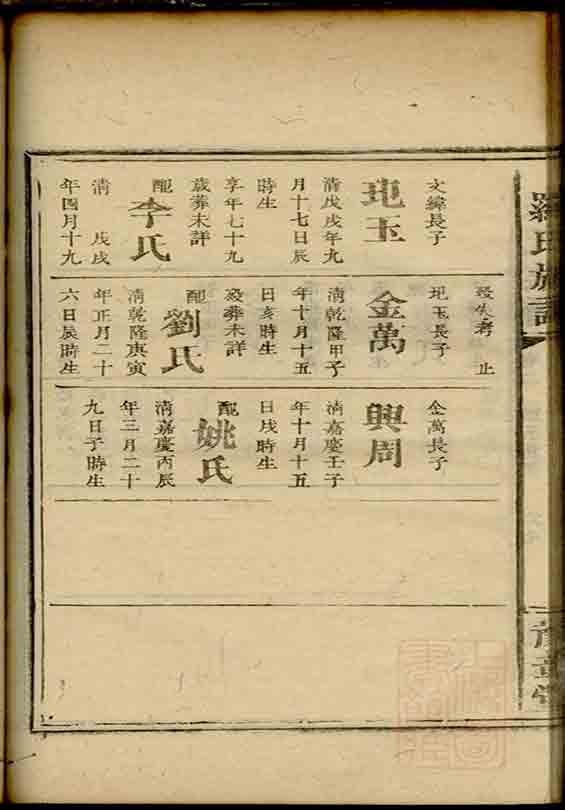 羅氏族譜
豫章堂
文緯長子
玉
清戊戌年九
月十七日辰
時生
享年七十九
歲葬未詳
配李氏
清 戊戌
年四月十九
歿失考 止
玉長子
金萬
清乾隆甲子
年十月十五
日亥時生
歿葬未詳
配劉氏
清乾隆庚寅
年正月二十
六日辰時生
金萬長子
興周
清嘉慶壬子
年十月十五
日戌時生
配姚氏
清嘉慶丙辰
年三月二十
九日子時生